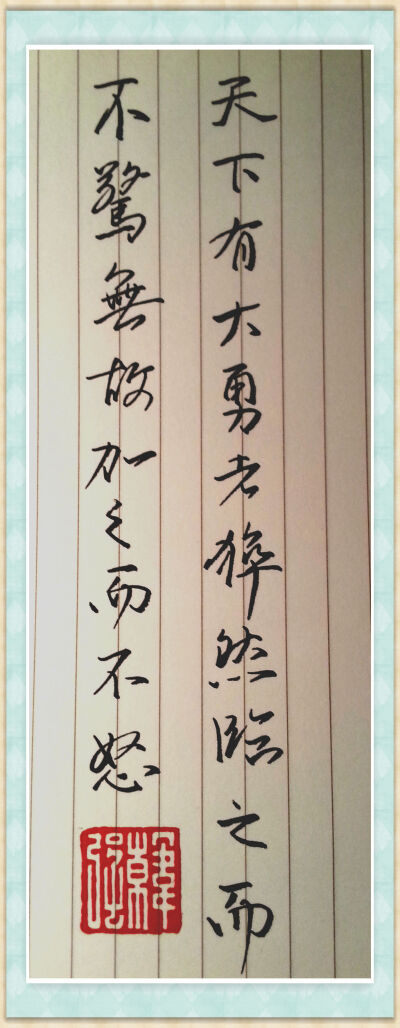 天下有大勇者猝然臨之而
不驚無故加之而不怒